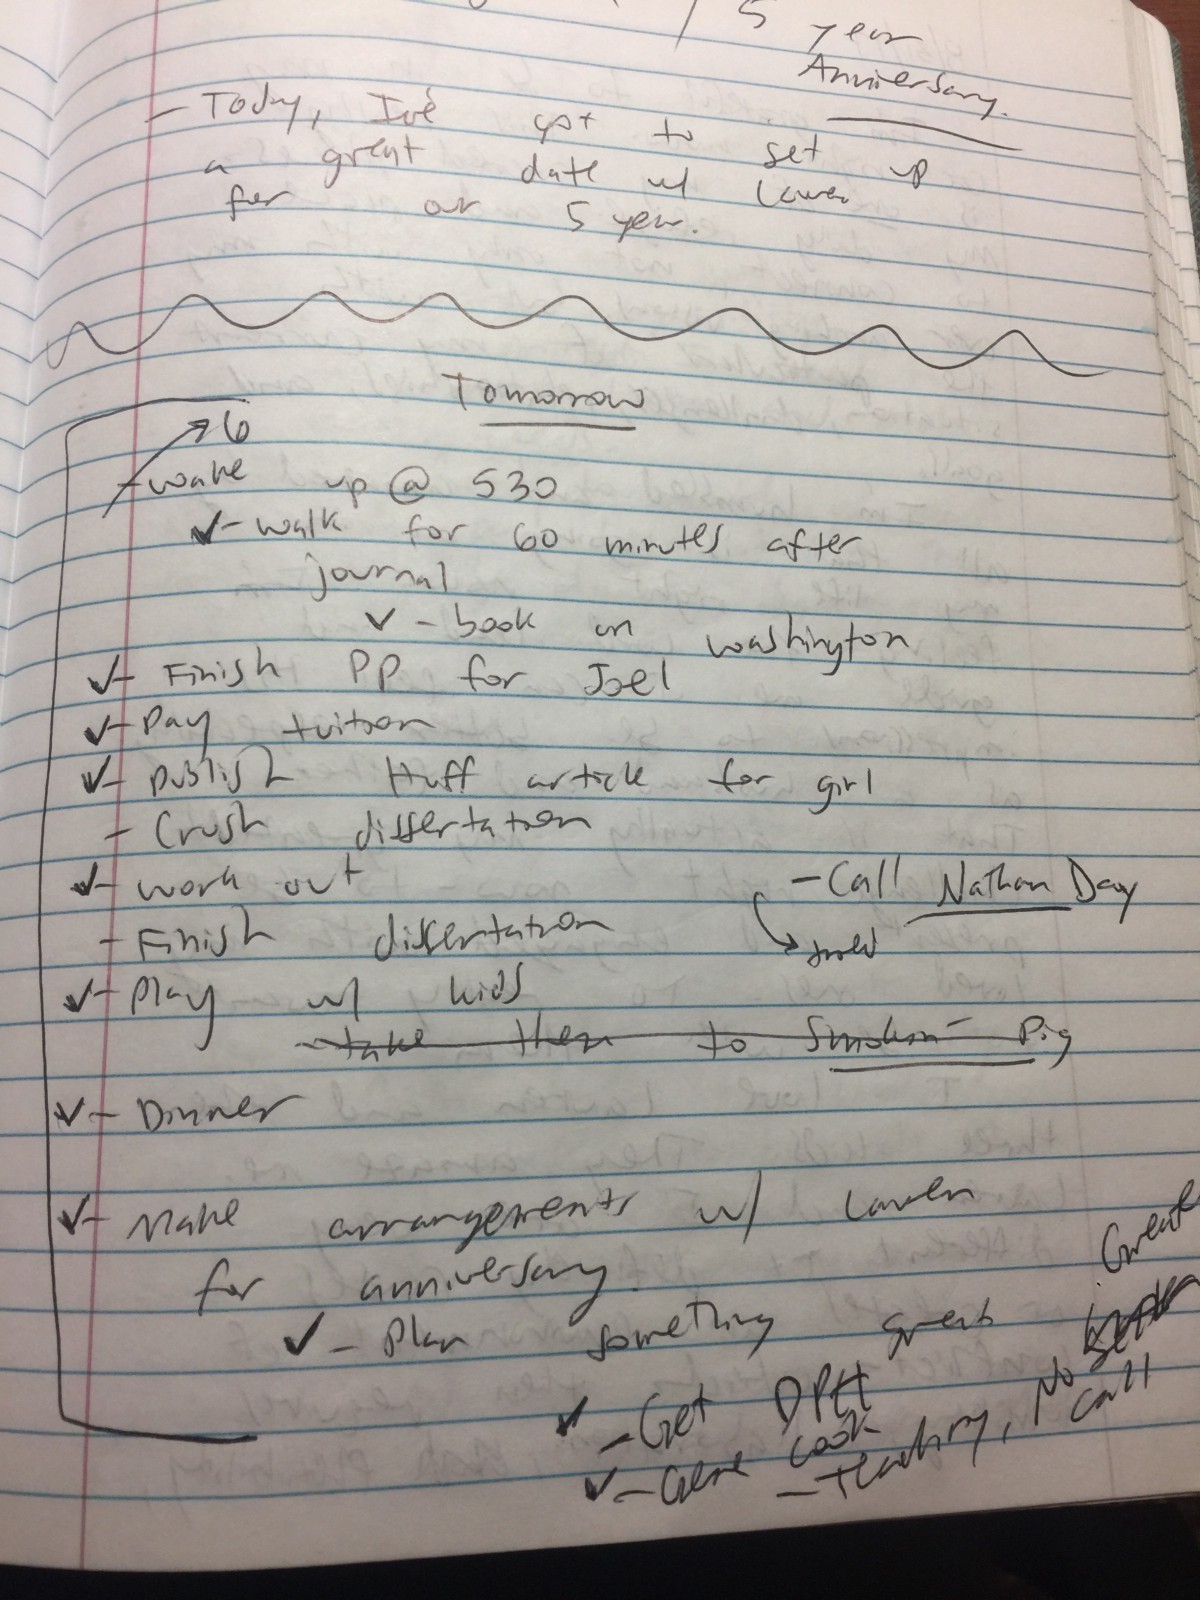 5 year
Anniversary.
- Today, I've got to set up
a great date w/ Lauren
for our 5 year.
Tomorrow
6
- wake up @ 530
✓- walk for 60 minutes after
journal
✓ - book on Washington
✓- Finish PP for Joel
✓- Pay tuition
✓- Publish Huff article for girl
- Crush dissertation
✓- work out
- Call Nathan Day
- Finish dissertation
✓- Play w/ kids
- take them to Smokin Pig
✓- Dinner
✓- Make arrangements w/ Lauren
for anniversary.
✓ - Plan something great
✓ - Get DPH
✓ - Gene Cook
Great
- teaching, No
call